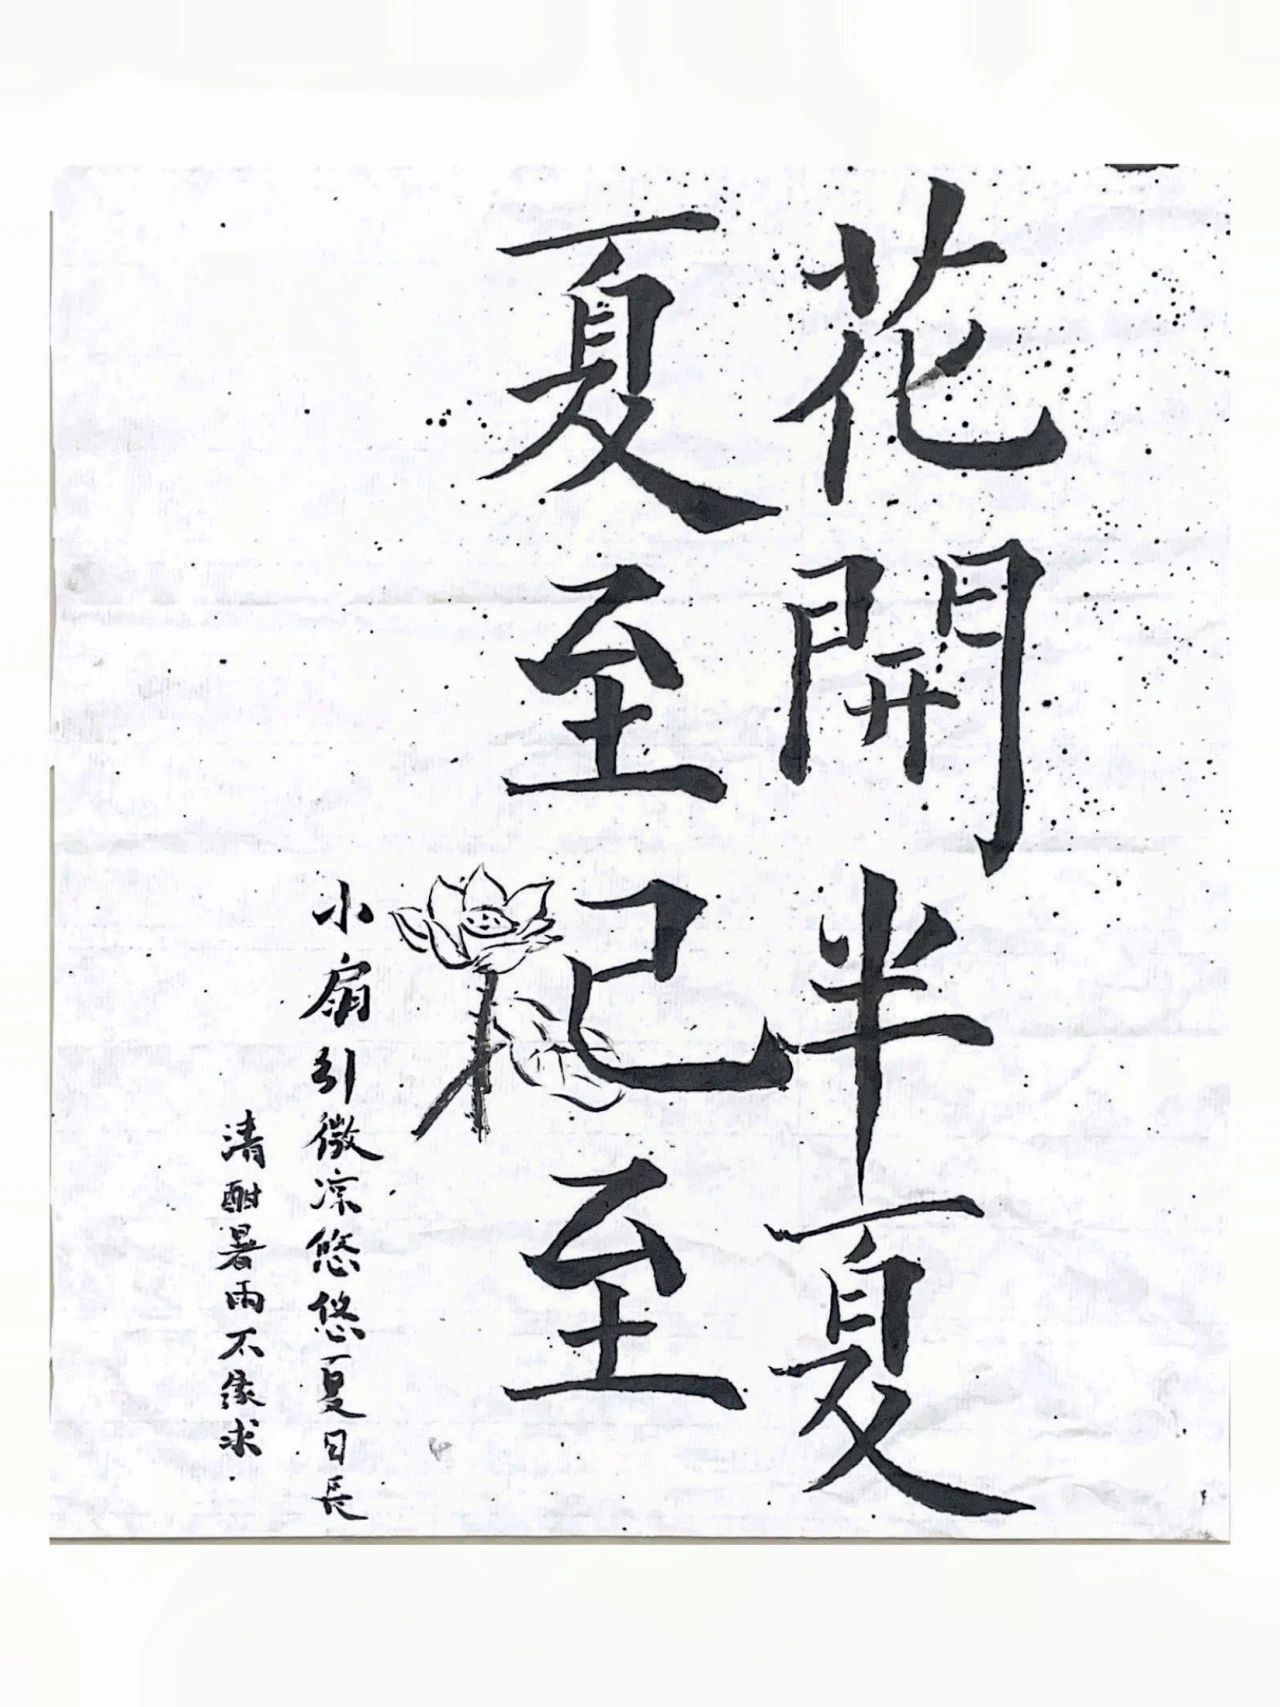 花開半夏
夏至已至
小扇引微凉悠悠夏日長
清酣暑雨不缘求